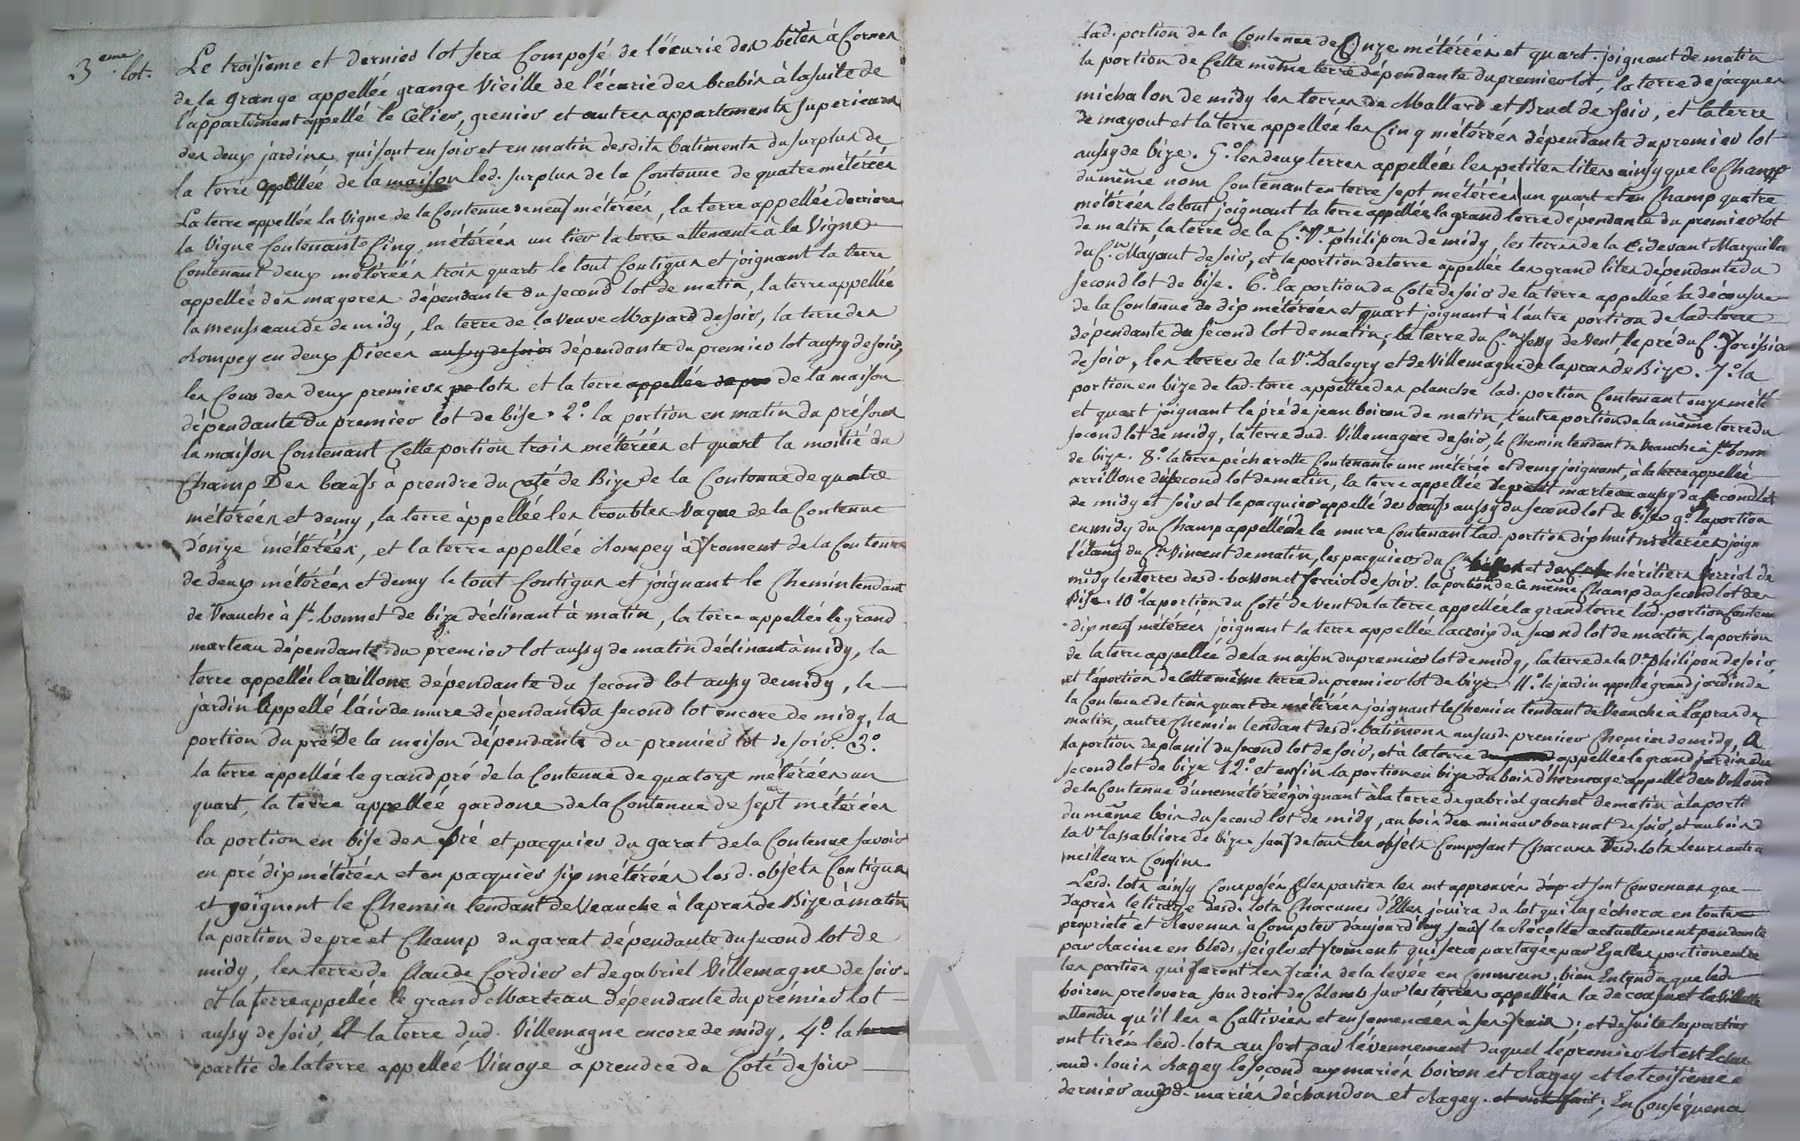 3eme lot.
Le troisième et dernier lot sera Composé de l'écurie des bêtes à Cornes
de la grange appellée grange Vieille de l'écurie des brebis à la suite de
l'appartement appellé le Célier, grenier et autres appartements superieurs
des deux jardins qui sont en soir et en matin desdits batiments du surplus de
la terre appellée de la maison led. surplus de la Contenue de quatre métérées
La terre appellée la Vigne de la Contenue de neuf métérées, la terre appellée derrière
la Vigne Contenante Cinq métérées un tier la terre attenante à la Vigne
Contenant deux métérées trois quart le tout Contigus et joignant la terre
appellée des mayores dépendante du second lot de matin, la terre appellée
la meusseaude de midy, la terre de la veuve Massard de soir, la terre des
Rompey en deux pièces aussy de soir dépendante du premier lot aussy de soir,
les Cours des deux premiers lots et la terre appellée de de la maison
dépendante du premier lot de bise. 2.° la portion en matin du pré sous
la maison Contenant Cette portion trois métérées et quart la moitié du
Champ Des bœufs a prendre du coté de Bize de la Contenue de quatre
métérées et demy, la terre appellée les troubles Vaque de la Contenue
d'onze métérées, et la terre appellée Rompey à froment de la Contenue
de deux métérées et demy le tout Contigus et joignant le Chemin tendant
de Veauche à St. bonnet de bize déclinant à matin, la terre appellée le grand
marteau dépendante du premier lot aussy de matin déclinant à midy, la
terre appellée l'arillone dépendante du second lot aussy de midy, le
jardin appellé l'air de mure dépendant du second lot encore de midy, la
portion du pré De la maison dépendante du premier lot de soir. 3.°
la terre appellée le grand pré de la Contenue de quatorze métérées un
quart, la terre appellée gardone de la Contenue de sept métérées
la portion en bise des pré et pacquier du garat de la Contenue savoir
en pré dix métérées et en pacquier six métérées lesd. objets Contigus
et joignent le Chemin tendant de Veauche à la pras de Bize à matin
la portion de pré et Champ du garat dépendante du second lot de
midy, les terres de Claude Cordier et de gabriel Villemagne de soir
et la terre appellée le grand Marteau dépendante du prémier lot
aussy de soir, Et la terre dud. Villemagne encore de midy, 4.° la
partie de la terre appellée Vinoye a prendre du Coté de soir
lad. portion de la Contenue de Onze métérées et quart joignant de matin
la portion de Cette même terre dépendante du premier lot, la terre de jacques
michalon de midy les terres de Mallard et Brud de soir, et la terre
de mayout et la terre appellée les Cinq métérées dépendante du premier lot
aussy de bize. 5.° les deux terres appellées les petites lites ainsy que le Champ
du même nom Contenant en terre sept métérées un quart et en Champ quatre
métérées le tout joignant la terre appellée la grand terre dépendante du premier lot
de matin, la terre de la C.ne V.e philipon de midy, les terres de la Cidevant Marguillier
du C.n Mayout de soir, et la portion de terre appellée les grand lites dépendante du
second lot de bise. 6.° la portion du Coté de soir de la terre appellée la décousue
de la Contenue de dix métérées et quart joignant à l'autre portion de lad. terre
dépendante du second lot de matin, la terre du C.n Jessy de Vent le pré du C.n
de soir, les terres de la V.e Dalegry et de Villemagne de la pras de Bize. 7.° la
portion en bize de lad. terre appellée des planche lad. portion Contenant onze mété
et quart joignant le pré de jean boiron de matin, l'autre portion de la même terre du
second lot de midy, la terre dud. Villemagne de soir, le Chemin tendant de Veauche à St. bonn
de bize. 8.° la terre pécharotte Contenante une métérée et demy joignant, à la terre appellée
arrillone du second lot de matin, la terre appellée le petit marteau aussy du second lot
de midy et soir et le pacquier appellé des bœufs aussy du second lot de bise, 9.° la portion
en midy du Champ appellé de la mure Contenant lad. portion dix huit métérées joign
l'étang du C.n Vincent de matin, les pacquiers du C.n et des héritiers ferriol de
midy les terres desd. basson et ferriol de soir. la portion de Ce même Champ du second lot de
Bise. 10.° la portion du Coté de Vent de la terre appellée la grand terre lad. portion Conten
dix neuf métérées joignant la terre appellée la croix du second lot de matin, la portion
de la terre appellée de la maison du premier lot de midy, la terre de la V.e philipon de soir,
et la portion de Cette même terre du premier lot de bize. 11.° le jardin appellé grand jardin de
la Contenue de trois quart de métérées joignant le Chemin tendant de Veauche à la pras de
matin, autre Chemin tendant desd. batiments ausd. premier Chemin de midy,
la portion de planil du second lot de soir, et à la terre appellée le grand jardin du
second lot de bize 12.° et enfin la portion en bize du bois d'hermage appellé
de la Contenue d'une métérée joignant à la terre de gabriel gachet de matin à la porti
du même bois du second lot de midy, au bois des mineurs bournat de soir, et au bois d
la V.e lassabliere de bize. sauf de tous les objets Composant Chacuns Desd. lots leurs autres
meilleurs Confins.
Lesd. lots ainsy Composés Les parties les ont approuvés et sont Convenues que
d'après le tirage desd. lots Chacunes d'Elles jouira du lot qui lui échera en toute
propriété et Revenus à Compter d'aujourd'huy sauf la Récolte actuellement pendante
par Racine en bleds, seigles et froments qui sera partagée par Egalles portions entre
les parties qui feront les frais de la levée en Commun, bien Entendu que led.
boiron prelevera son droit de Colons sur les terres appellées la décousue et
attendu qu'il les a Cultivées et ensemencées à ses frais; et de suite les parties
ont tirés lesd. lots au sort par l'évennement duquel le premier lot est Echu
aud. louis Ragey le second aux mariés boiron et Ragey et le troisieme
dernier auxd. mariés déchandon et Ragey. et ont fait; En Conséquence